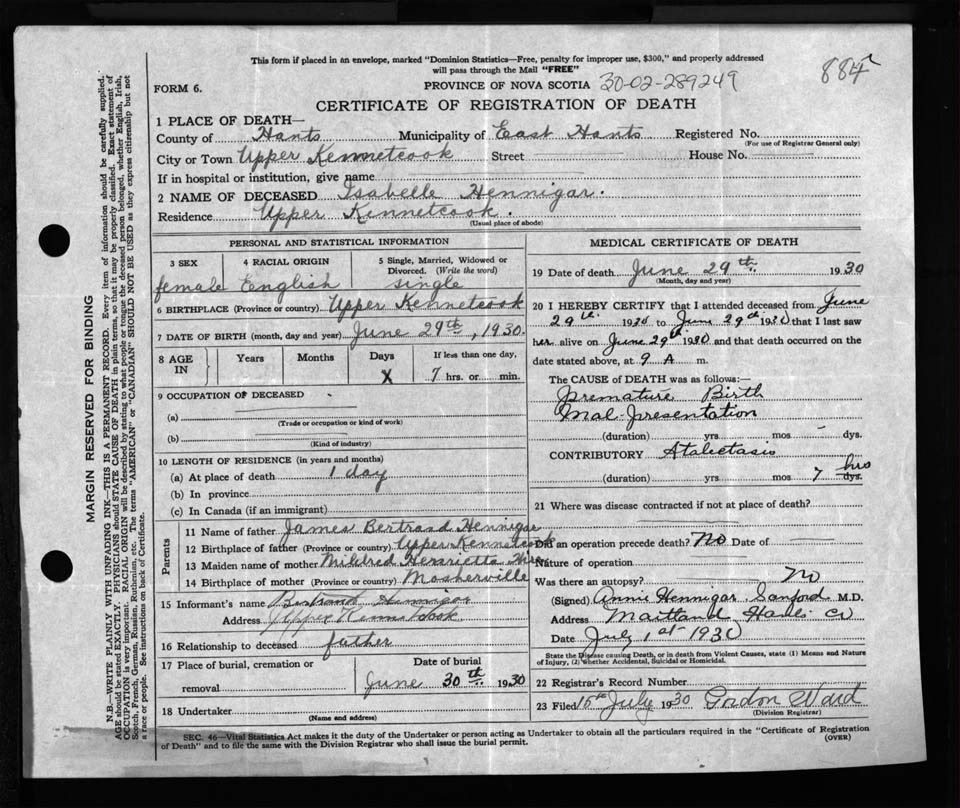 This form if placed in an envelope, marked "Dominion Statistics—Free, penalty for improper use, $300," and properly addressed
will pass through the Mail "FREE"
884
FORM 6.
PROVINCE OF NOVA SCOTIA 30-02-289249
CERTIFICATE OF REGISTRATION OF DEATH
1 PLACE OF DEATH—
County of Hants Municipality of East Hants Registered No.
(For use of Registrar General only)
City or Town Upper Kennetcook Street House No.
If in hospital or institution, give name
2 NAME OF DECEASED Isabelle Hennigar.
Residence Upper Kennetcook.
(Usual place of abode)
PERSONAL AND STATISTICAL INFORMATION
3 SEX 4 RACIAL ORIGIN 5 Single, Married, Widowed or
Divorced. (Write the word)
female English single
6 BIRTHPLACE (Province or country) Upper Kennetcook
7 DATE OF BIRTH (month, day and year) June 29th, 1930.
8 AGE IN Years Months Days If less than one day,
X 7 hrs. or min.
9 OCCUPATION OF DECEASED
(a)
(Trade or occupation or kind of work)
(b)
(Kind of industry)
10 LENGTH OF RESIDENCE (in years and months)
(a) At place of death 1 day
(b) In province
(c) In Canada (if an immigrant)
Parents
11 Name of father James Bertrand Hennigar
12 Birthplace of father (Province or country) Upper Kennetcook
13 Maiden name of mother Mildred Henrietta
14 Birthplace of mother (Province or country) Mosherville
15 Informant's name Bertrand Hennigar
Address Upper Kennetcook
16 Relationship to deceased father
17 Place of burial, cremation or Date of burial
removal June 30th 1930
18 Undertaker
(Name and address)
MEDICAL CERTIFICATE OF DEATH
19 Date of death June 29th 1930
(Month, day and year)
20 I HEREBY CERTIFY that I attended deceased from June
29th 1930 to June 29th 1930 that I last saw
her alive on June 29th 1930 and that death occurred on the
date stated above, at 9 A m.
The CAUSE of DEATH was as follows:—
Premature Birth
Mal-presentation
(duration) yrs mos - dys.
CONTRIBUTORY Atalectasis
(duration) yrs. mos 7 hrs dys.
21 Where was disease contracted if not at place of death?
Did an operation precede death? No Date of
Nature of operation
Was there an autopsy? No
(Signed) Annie Hennigar Sanford M.D.
Address Maitland Hants Co
Date July 1st 1930
State the Disease causing Death, or in death from Violent Causes, state (1) Means and Nature
of Injury, (2) Whether Accidental, Suicidal or Homicidal.
22 Registrar's Record Number
23 Filed 15th July 1930 Gordon Ward
(Division Registrar)
SEC. 46—Vital Statistics Act makes it the duty of the Undertaker or person acting as Undertaker to obtain all the particulars required in the "Certificate of Registration
of Death" and to file the same with the Division Registrar who shall issue the burial permit.
(OVER)
MARGIN RESERVED FOR BINDING
N.B.—WRITE PLAINLY, WITH UNFADING INK—THIS IS A PERMANENT RECORD. Every item of information should be carefully supplied.
AGE should be stated EXACTLY. PHYSICIANS should STATE CAUSE OF DEATH in plain terms, so that it may be properly classified. Exact statement of
OCCUPATION is very important. RACIAL ORIGIN will be described by stating to what people or tongue the deceased person belonged, whether English, Irish,
Scotch, French, German, Russian, Ruthenian, etc. The terms "AMERICAN" or "CANADIAN" SHOULD NOT BE USED as they express citizenship but not
a race or people. See instructions on back of Certificate.